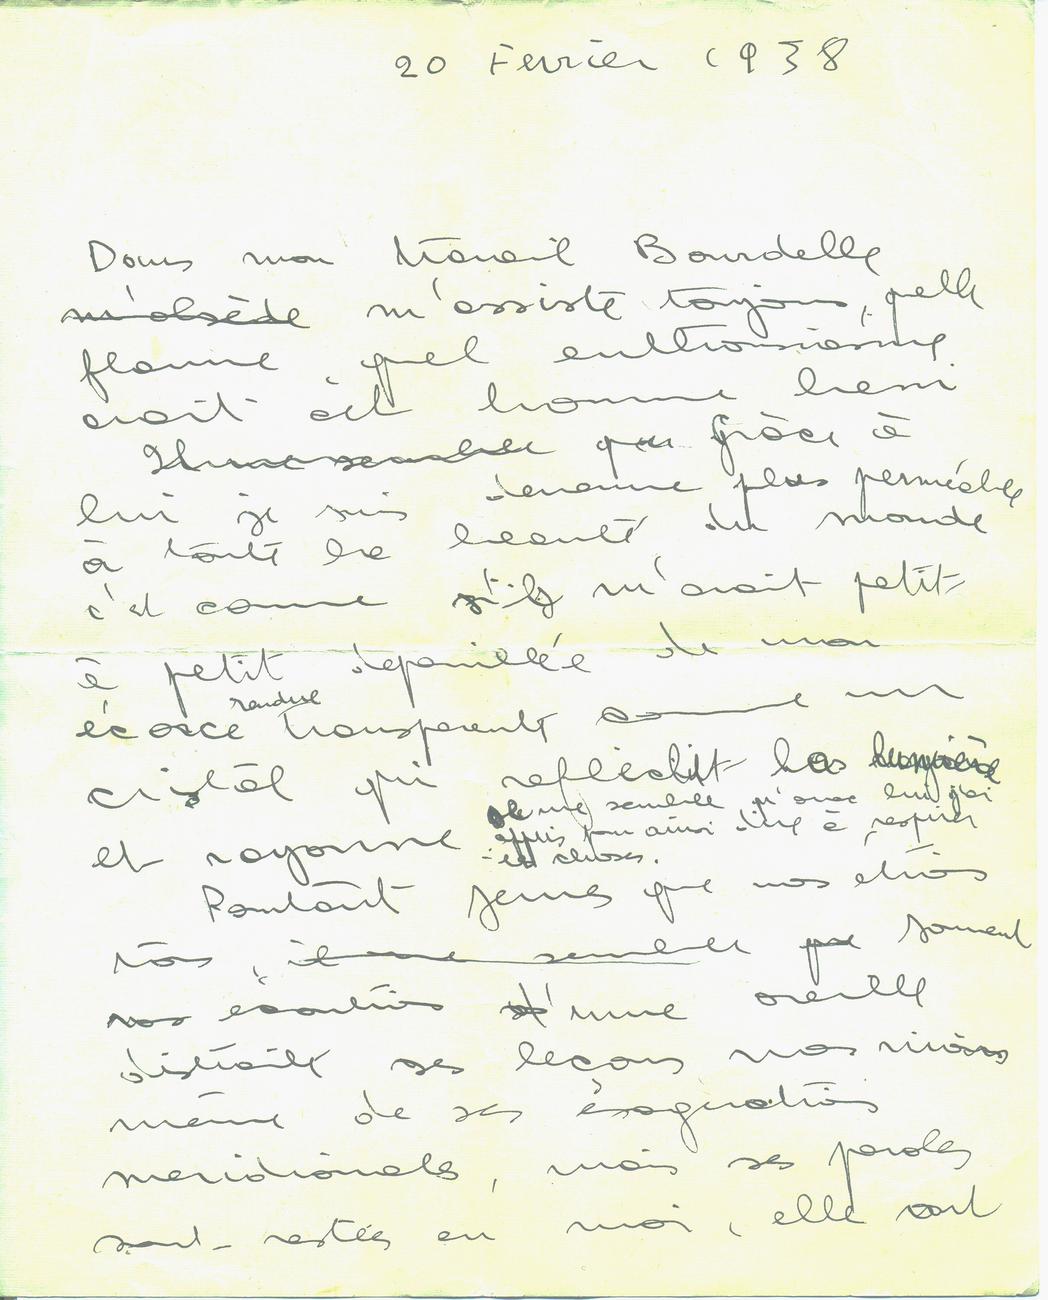 20 Fevrier 1938
Dans mon travail Bourdelle
m'obsède m'assiste toujours, quelle
flamme, quel enthousiasme
avait cet homme
Il me semble que grâce à
lui je suis devenue plus perméable
à toute la beauté du monde
c'est comme s'il m'avait petit
à petit depouillée de mon
écorce rendue transparente comme un
cristal qui reflechit la lumière
et rayonne Il me semble qu'avec lui j'ai
appris pour ainsi dire à respirer
les choses.
Pourtant jeunes que nos étions
tous, il me semble que souvent
nos écoutions d'une oreille
distraite ses leçons nos riions
même de ses exagerations
meridionales, mais ses paroles
sont restées en moi, elle sont